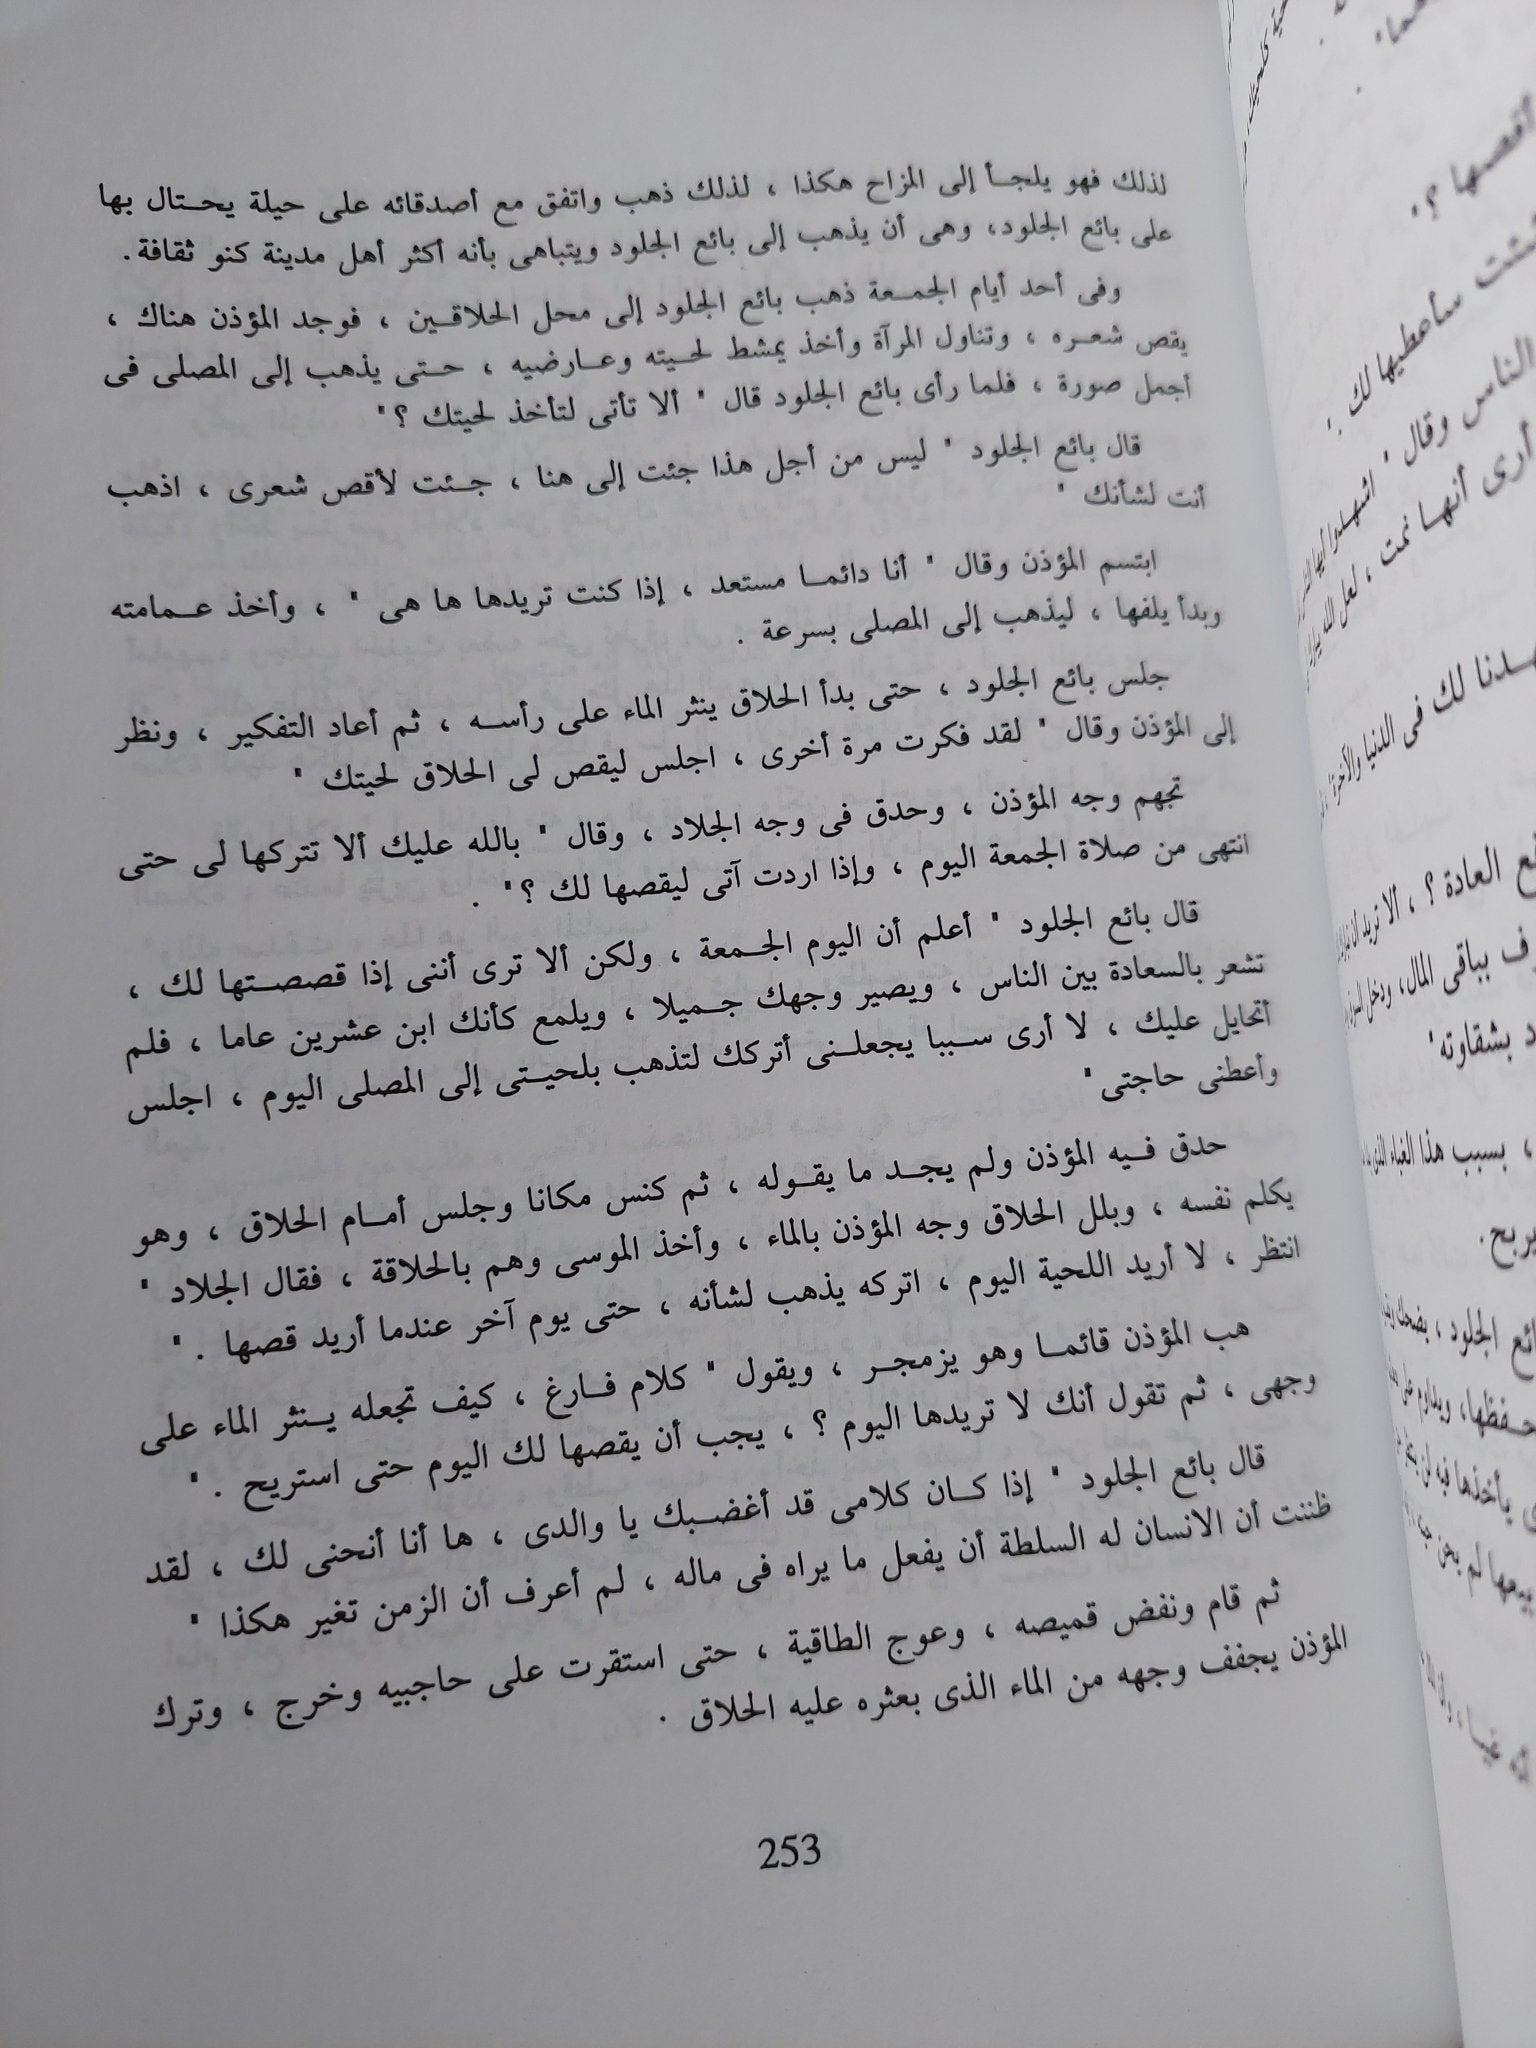 لذلك فهو يلجـأ إلى المزاح هكذا ، لذلك ذهب واتفق مع أصدقائه على حيلة يحـتال بها
على بائع الجلود، وهى أن يذهب إلى بائع الجلود ويتباهى بأنه أكثر أهل مدينة كنو ثقافة.
وفى أحد أيام الجمـعة ذهب بائع الجلود إلى محل الحلاقـين ، فوجد المؤذن هناك ،
يقص شعـره ، وتناول المرآة وأخذ يمشط لحـيته وعـارضيه ، حـتى يذهب إلى المصلى فى
أجمل صورة ، فلما رأى بائع الجلود قال " ألا تأتى لتأخذ لحيتك ؟"
قال بائع الجلود " ليس من أجل هذا جئت إلى هنا ، جـئت لأقص شعرى ، اذهب
أنت لشأنك "
ابتسم المؤذن وقال " أنا دائمـا مستعد ، إذا كنت تريدها ها هى " ، وأخذ عـمامته
وبدأ يلفها ، ليذهب إلى المصلى بسرعة .
جلس بائع الجلود ، حتى بدأ الحلاق ينثر الماء على رأسـه ، ثم أعاد التفكير ، ونظر
إلى المؤذن وقال " لقد فكرت مرة أخرى ، اجلس ليقص لى الحلاق لحيتك "
تجهم وجه المؤذن ، وحدق فى وجه الجلاد ، وقال " بالله عليك ألا تتركها لى حتى
انتهى من صلاة الجمعة اليوم ، وإذا اردت آتى ليقصها لك ؟" .
قال بائع الجلود " أعلم أن اليوم الجـمعة ، ولكن ألا ترى أننى إذا قصصـتها لك ،
تشعر بالسعادة بين الناس ، ويصير وجهك جـميلا ، ويلمع كأنك ابن عشرين عاما ، فلم
أتحايل عليك ، لا أرى سـببا يجعلـنى أتركك لتذهب بلحيـتى إلى المصلى اليوم ، اجلس
وأعطنى حاجتى "
حدق فـيه المؤذن ولم يجـد ما يقـوله ، ثم كنس مكانا وجلس أمـام الحلاق ، وهو
يكلم نفسه ، وبلل الحلاق وجه المؤذن بالماء ، وأخذ الموسى وهم بالحلاقة ، فقال الجلاد "
انتظر ، لا أريد اللحية اليوم ، اتركه يذهب لشأنه ، حتى يوم آخر عندما أريد قصها . "
هب المؤذن قائمـا وهو يزمجـر ، ويقول " كلام فـارغ ، كيف تجعله يـنثر الماء على
وجهى ، ثم تقول أنك لا تريدها اليوم ؟ ، يجب أن يقصها لك اليوم حتى استريح . "
قال بائع الجلود " إذا كـان كلامى قد أغضـبك يا والدى ، ها أنا أنحنى لك ، لقد
ظننت أن الانسان له السلطة أن يفعل ما يراه فى ماله ، لم أعرف أن الزمن تغير هكذا "
ثم قام ونفض قميصه ، وعوج الطاقية ، حتى استقرت على حاجبيه وخرج ، وترك
المؤذن يجفف وجهه من الماء الذى بعثره عليه الحلاق .
253
أقصها ؟"
سأعطيها لك ."
الناس وقال " اشهدوا أيها
أرى أنهـا نمت ، لعل الله
لك فى الدنيا والآخرة
العادة ؟ ، ألا تريد أن
بباقى المال، ودخل
بشقاوته"
، بسبب هذا الغباء الذى
يربح.
الجلود ، يضحك